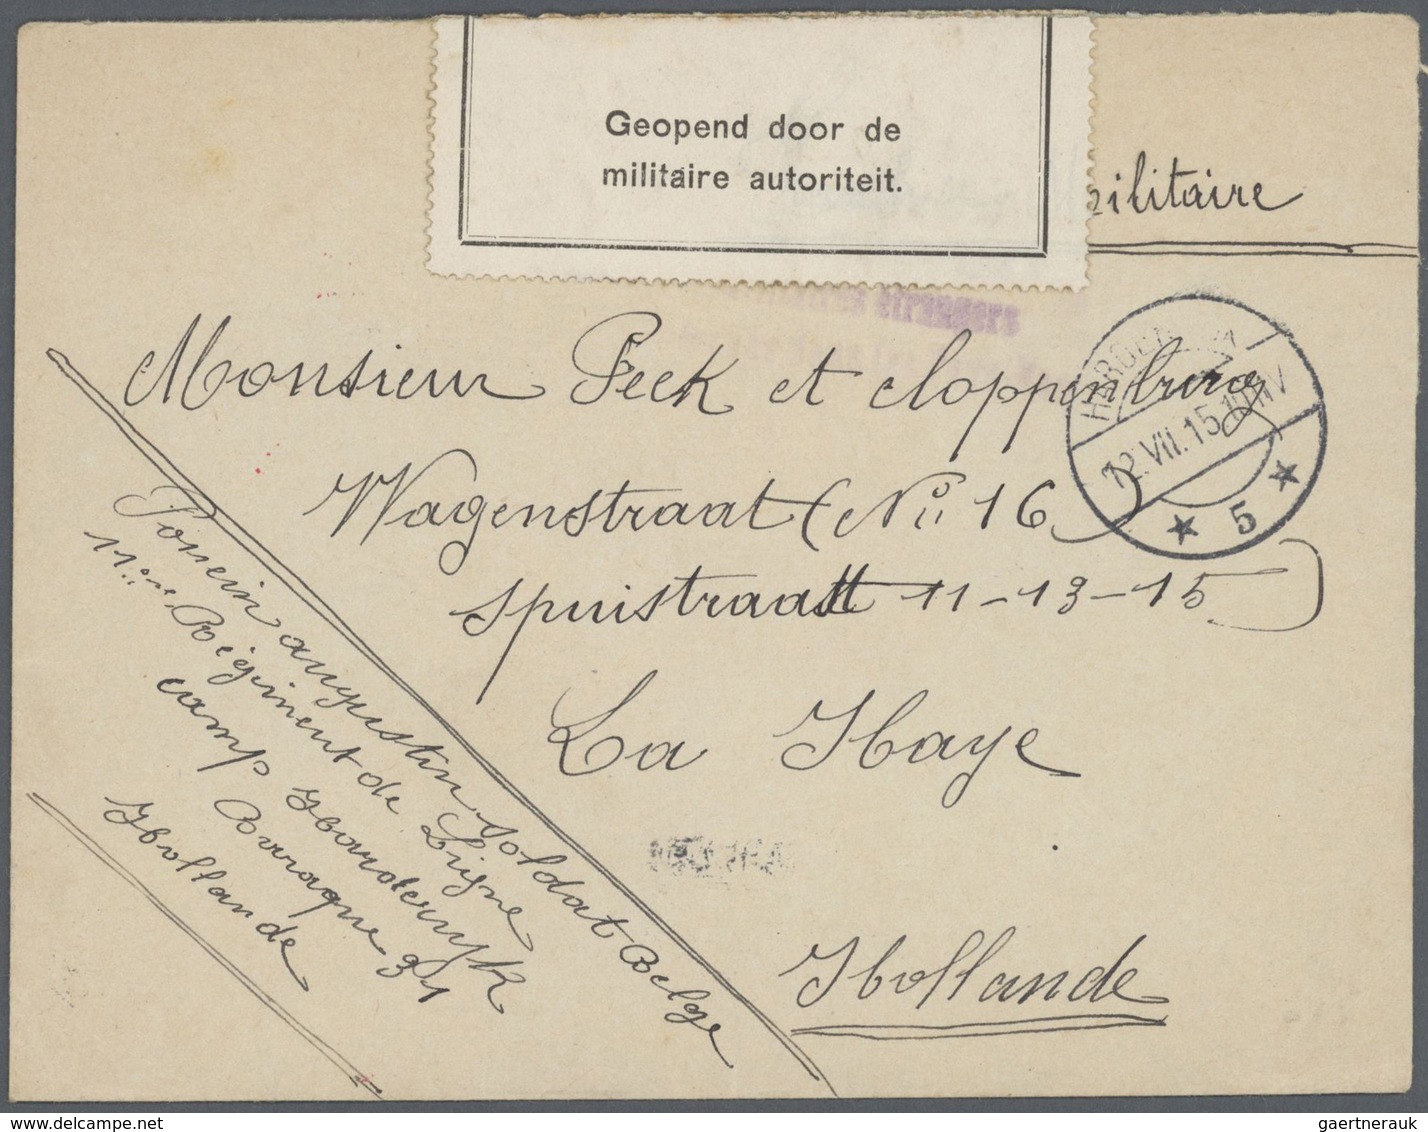 Geopend door de
militaire autoriteit.
militaire
étrangers
Monsieur Peek et Cloppenburg
Wagenstraat (No 16)
Spuistraat 11-13-15
La Haye
Hollande
12.VII.15
5
augustin soldat Belge
11me Régiment de Ligne
camp Harderwyk
Baraque 31
Hollande
gaertnerauk